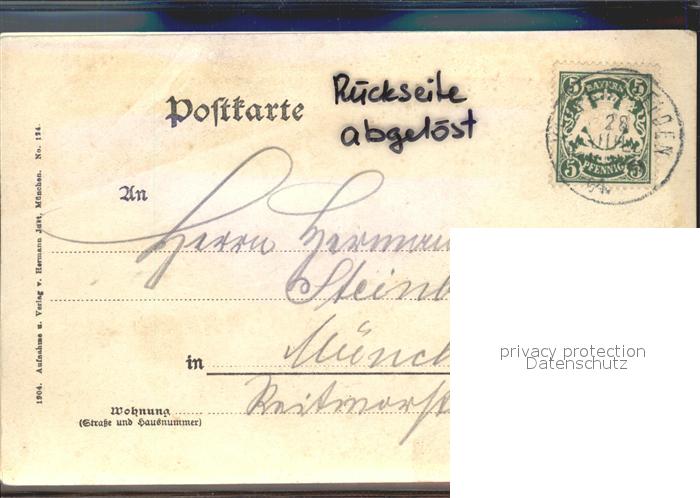 Postkarte
Rückseite
abgelöst
5 BAYERN 5
28
5 PFENNIG 5
An
Herrn Herman
Steinb
in Münc
Reitmorst
Wohnung
(Straße und Hausnummer)
1904. Aufnahme u. Verlag v. Hermann Jost, München. No. 124.
privacy protection
Datenschutz